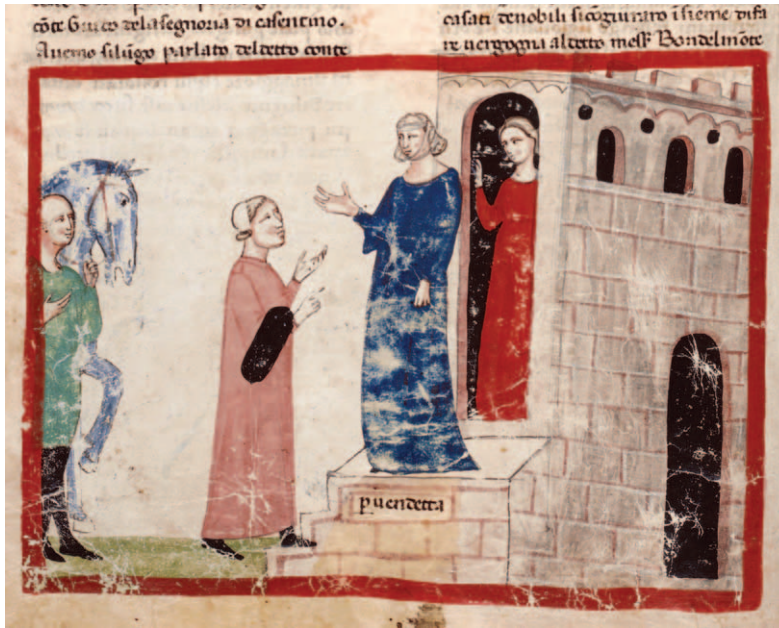 cōte Guido dela segnoria di casentino.
Auemo silūgo parlato deldetto conte
casati denobili si cogiuraro īsieme di fa
re uergogna al detto mess Bondelmōte
p uendetta